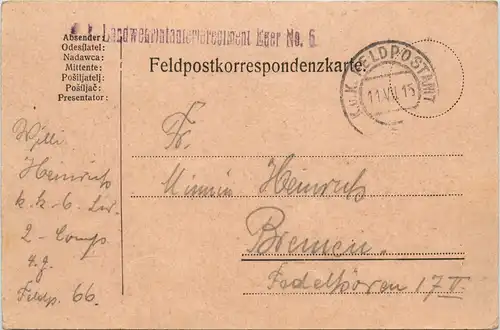 k. k. Landwehrinfanterieregiment Eger No. 6
Absender:
Odesílatel:
Nadawca:
Mittente:
Pošiljatelj:
Pošiljač:
Presentator:
Feldpostkorrespondenzkarte
K.u.K. FELDPOSTAMT
11.VII.15
Willi
Heinrich
k.k. 6. Lir.
2 - Comp
4. Z.
Feldp. 66.
Fr.
Minnin Heinrich
Bremen.
Fedelhören 17 II.